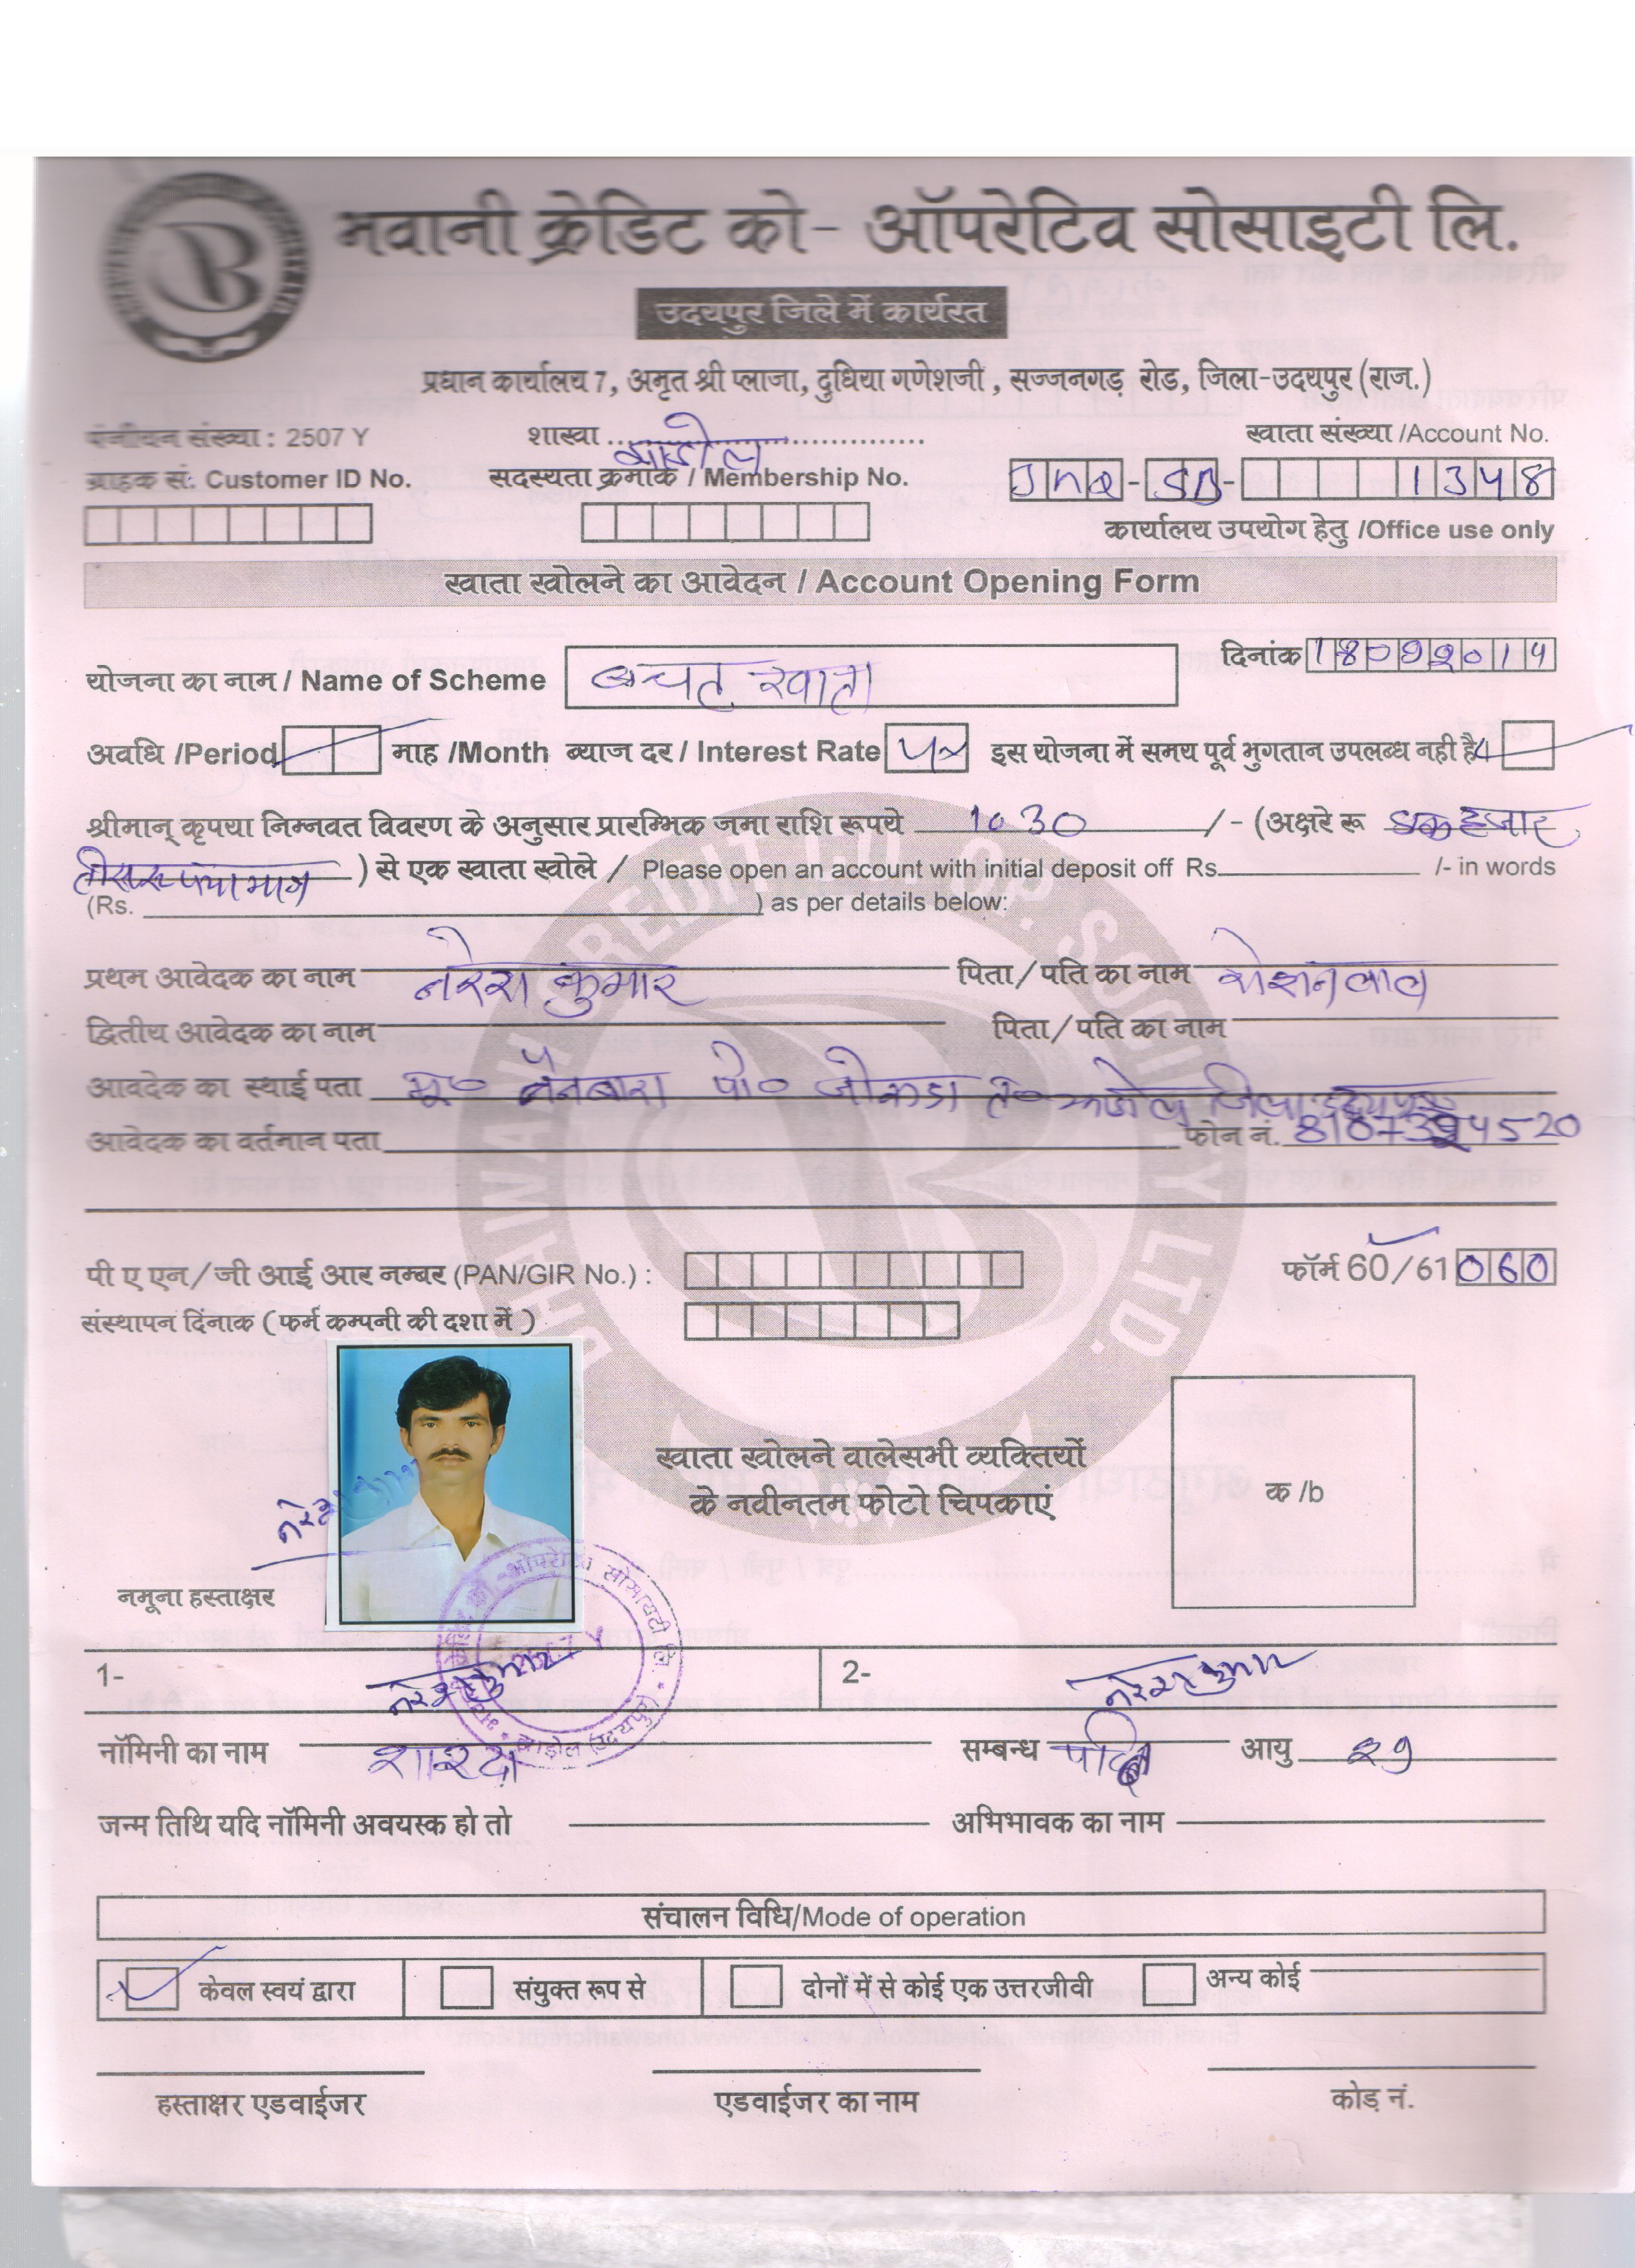 भवानी क्रेडिट को- ऑपरेटिव सोसाइटी लि.
उदयपुर जिले में कार्यरत
प्रधान कार्यालय 7, अमृत श्री प्लाजा, दुधिया गणेशजी, सज्जनगड़ रोड, जिला-उदयपुर (राज.)
पंजीयन संख्या : 2507 Y शाखा खाता संख्या /Account No.
ग्राहक सं: Customer ID No. सदस्यता क्रमांक / Membership No. JhQ-SB- 1348
कार्यालय उपयोग हेतु /Office use only
खाता खोलने का आवेदन / Account Opening Form
योजना का नाम / Name of Scheme बचत खाता दिनांक 18092014
अवधि /Period माह /Month ब्याज दर / Interest Rate इस योजना में समय पूर्व भुगतान उपलब्ध नही है
श्रीमान् कृपया निम्नवत विवरण के अनुसार प्रारम्भिक जमा राशि रूपये 1030 /- (अक्षरे रू एक हजार
तीस रूपया मात्र ) से एक खाता खोले / Please open an account with initial deposit off Rs. /- in words
(Rs. ) as per details below:
प्रथम आवेदक का नाम नरेश कुमार पिता/पति का नाम रोशन लाल
द्वितीय आवेदक का नाम पिता/पति का नाम
आवदेक का स्थाई पता मु० पो० त० जिला उदयपुर
आवेदक का वर्तमान पता फोन नं.
पी ए एन/जी आई आर नम्बर (PAN/GIR No.) : फॉर्म 60/61 060
संस्थापन दिंनाक ( फर्म कम्पनी की दशा में )
खाता खोलने वालेसभी व्यक्तियों
के नवीनतम फोटो चिपकाएं
क /b
नमूना हस्ताक्षर
1- नरेश कुमार 2- नरेश कुमार
नॉमिनी का नाम शारदा सम्बन्ध पत्नि आयु 29
जन्म तिथि यदि नॉमिनी अवयस्क हो तो अभिभावक का नाम
संचालन विधि/Mode of operation
केवल स्वयं द्वारा संयुक्त रूप से दोनों में से कोई एक उत्तरजीवी अन्य कोई
हस्ताक्षर एडवाईजर एडवाईजर का नाम कोड़ नं.